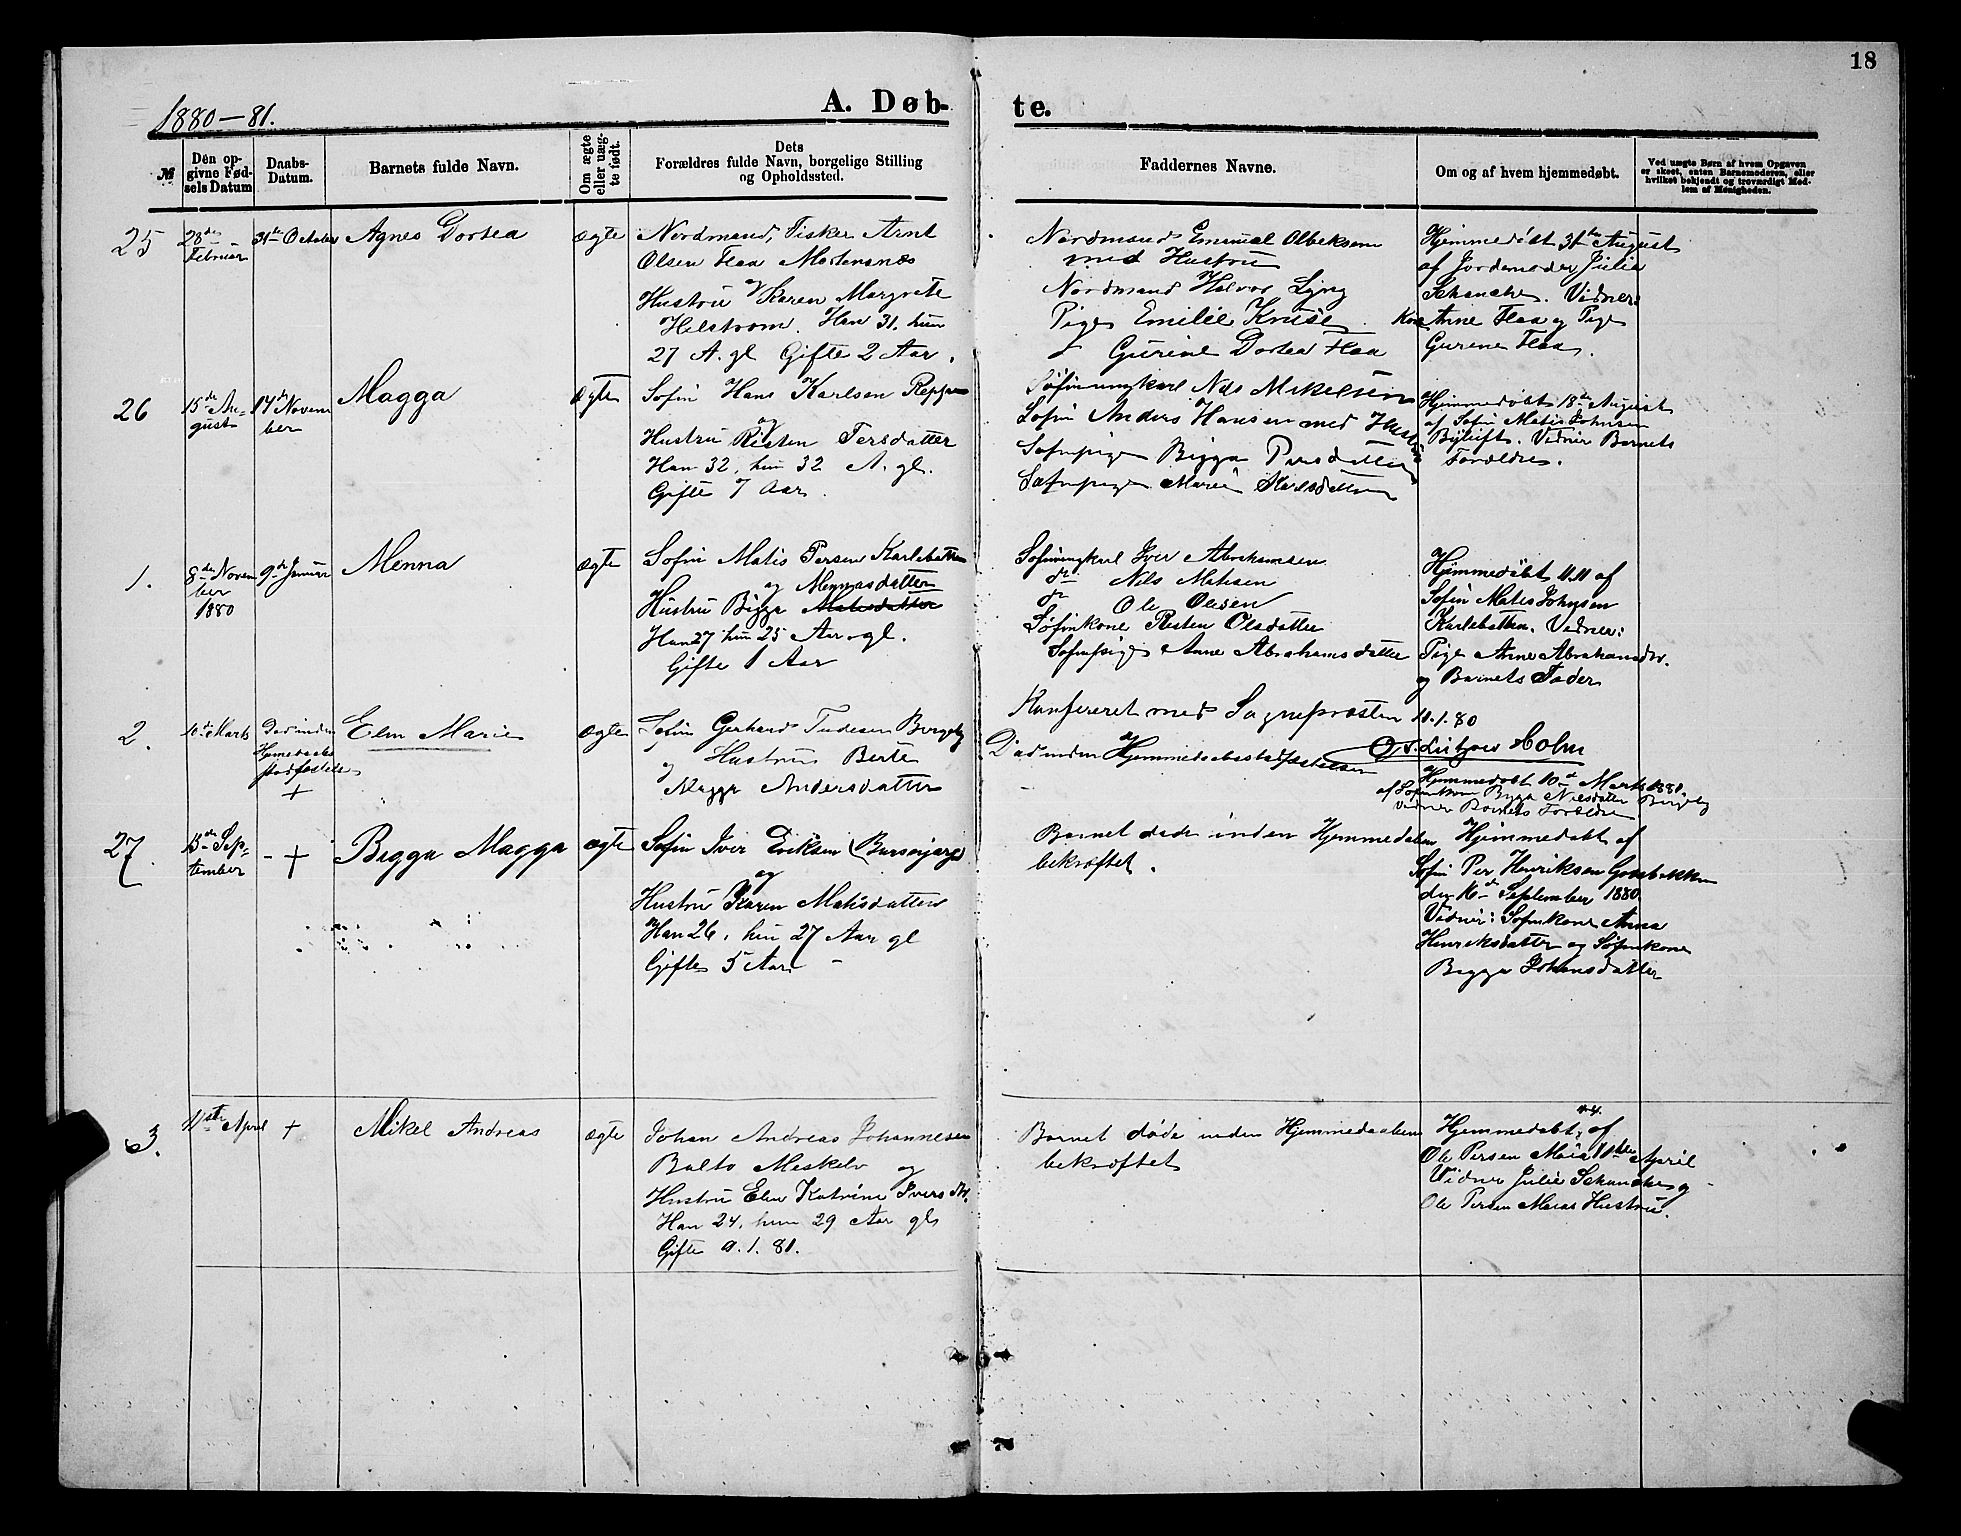 18
1880-81.
A. Døb-
te.
№
Den op-
givne Fød-
sels Datum
Daabs-
Datum.
Barnets fulde Navn.
Om ægte
eller uæg-
te født.
Dets
Forældres fulde Navn, borgelige Stilling
og Opholdssted.
Faddernes Navne.
Om og af hvem hjemmedøbt.
Ved uægte Børn af hvem Opgaven
er skeet, enten Barnemoderen, eller
hvilket bekjendt og troværdigt Med-
lem af Menigheden.
25
28de
Februar
31te October
Agnes Dortea
ægte
Nordmand, Fisker Arnt
Olsen Flaa Mortensnes
og
Hustru Karen Margrete
Helstrom. Han 31, hun
27 A. gl Gifte 2 Aar.
Nordmand Emanuel Olbeksen
med Hustru
Nordmand Halvor Lyng
Pige Emilie Kruse
Gurine Dortea Flaa
Hjemmedøbt 31te August
af Jordemoder Julie
Schanche. Vidner:
Kone Anne Flaa og Pige
Gurine Flaa.
26
15de Au-
gust
14de Novem
ber
Magga
ægte
Sofin Hans Karlsen Reppen
og
Hustru Risten Persdatter
Han 32, hun 32 A. gl.
Gifte 7 Aar.
Søfinungkarl Nils Mikelsen
Sofin Anders Hansen med Hustru
Sofinpige Bigga Persdatter
Søfinpige Marie Karlsdatter
Hjemmedøbt 18de August
af Sofin Matis Johnsen
Byluft. Vidner Barnets
Forældre.
1.
8de Novem
ber
1880
9de Januar
Menna
ægte
Sofin Matis Persen Karlebotten
og Mennasdatter
Hustru Bigga Matisdatter
Han 27 hun 25 Aar gl.
Gifte 1 Aar
Sofinungkarl Iver Abrahamsen
do Nils Matisen
do Ole Olesen
Søfinkone Risten Olsdatter
Sofinpige Anne Abrahamsdatter
Hjemmedøbt 11.11 af
Sofin Matis Johnsen
Karlebotten. Vidner:
Pige Anne Abrahamsdtr.
og Barnets Fader
Konfereret med Sognepræsten 11.1.80
O. S. Lützow Holm
2.
10de Marts
Død inden
Hjemedaabs
stadfæstelse
+
Elen Marie
ægte
Sofin Gerhard Tudesen Bergeby
og Hustru Berte
Magga Andersdatter
Død inden Hjemmedaabsstadfæstelsen
Hjemmedøbt 10de Marts 1881
af Sofinkone Bigga Nilsdatter Bergeby
Vidner Barnets Forældre
27.
15de Sep-
tember
- +
Bigga Magga
ægte
Sofin Iver Eriksen (Bursnjarg)
og
Hustru Karen Matisdatter
Han 26, hun 27 Aar gl
Gifte 5 Aar. -
Barnet døde inden Hjemmedaaben
bekræftet.
Hjemmedøbt af
Sofin Per Henriksen Gandbakken
den 16de September 1880.
Vidner: Sofinkone Anna
Henriksdatter og Søfinkone
Bigga Johansdatter
3.
11te April
+
Mikel Andreas
ægte
Johan Andreas Johannesen
Balto Meskelv og
Hustru Elen Katrine Iversdtr.
Han 24, hun 29 Aar gl
Gifte 9.1.81.
Barnet døde inden Hjemmedaaben
bekræftet
Hjemmedøbt af
Ole Persen Maia 11te April
Vidner Julie Schanche og
Ole Persen Maias Hustru.